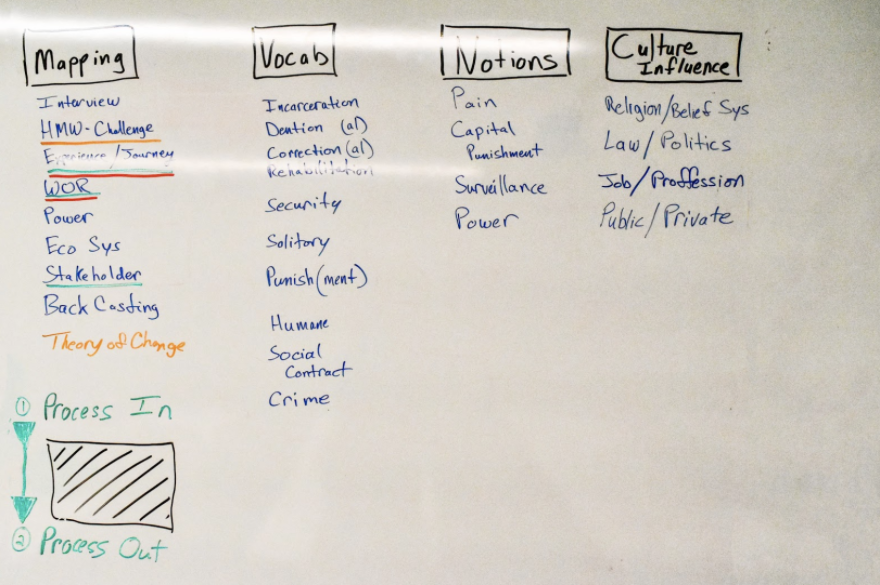 Mapping
Interview
HMW-Challenge
Experience/Journey
WOR
Power
Eco Sys
Stakeholder
Back Casting
Theory of Change
① Process In
② Process Out
Vocab
Incarceration
Dention (al)
Correction(al)
Rehabilitation
Security
Solitory
Punish(ment)
Humane
Social
Contract
Crime
Notions
Pain
Capital
Punishment
Surveillance
Power
Culture
Influence
Religion/Belief Sys
Law/Politics
Job/Proffession
Public/Private